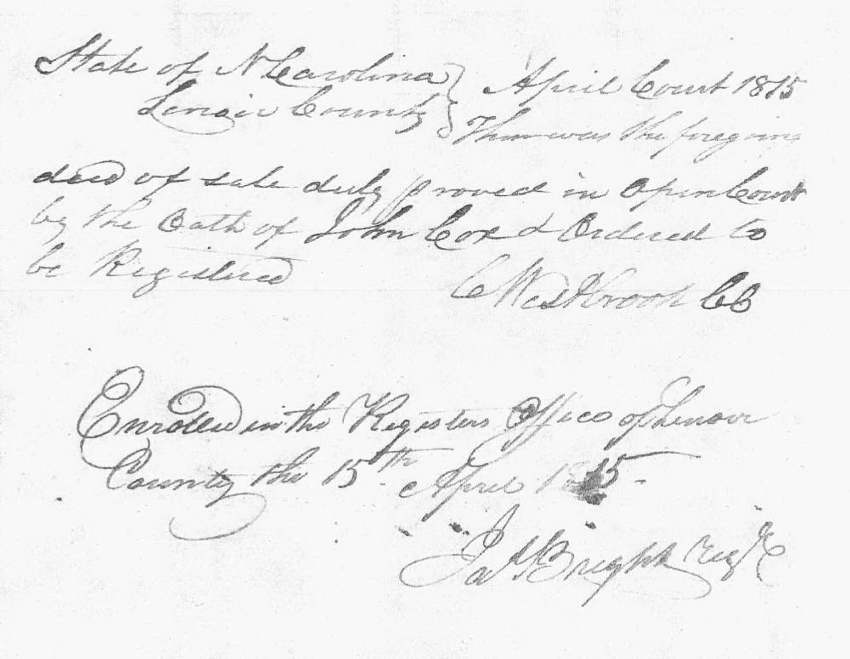 State of N Carolina } April Court 1815
Lenoir County } Then was the foregoing
deed of sale duly proved in Open Court
by the Oath of John Cox & Ordered to
be Registered
C Westbrook CC
Enroled in the Registers Office of Lenoir
County the 15th April 1815.
Jas Bright Regr